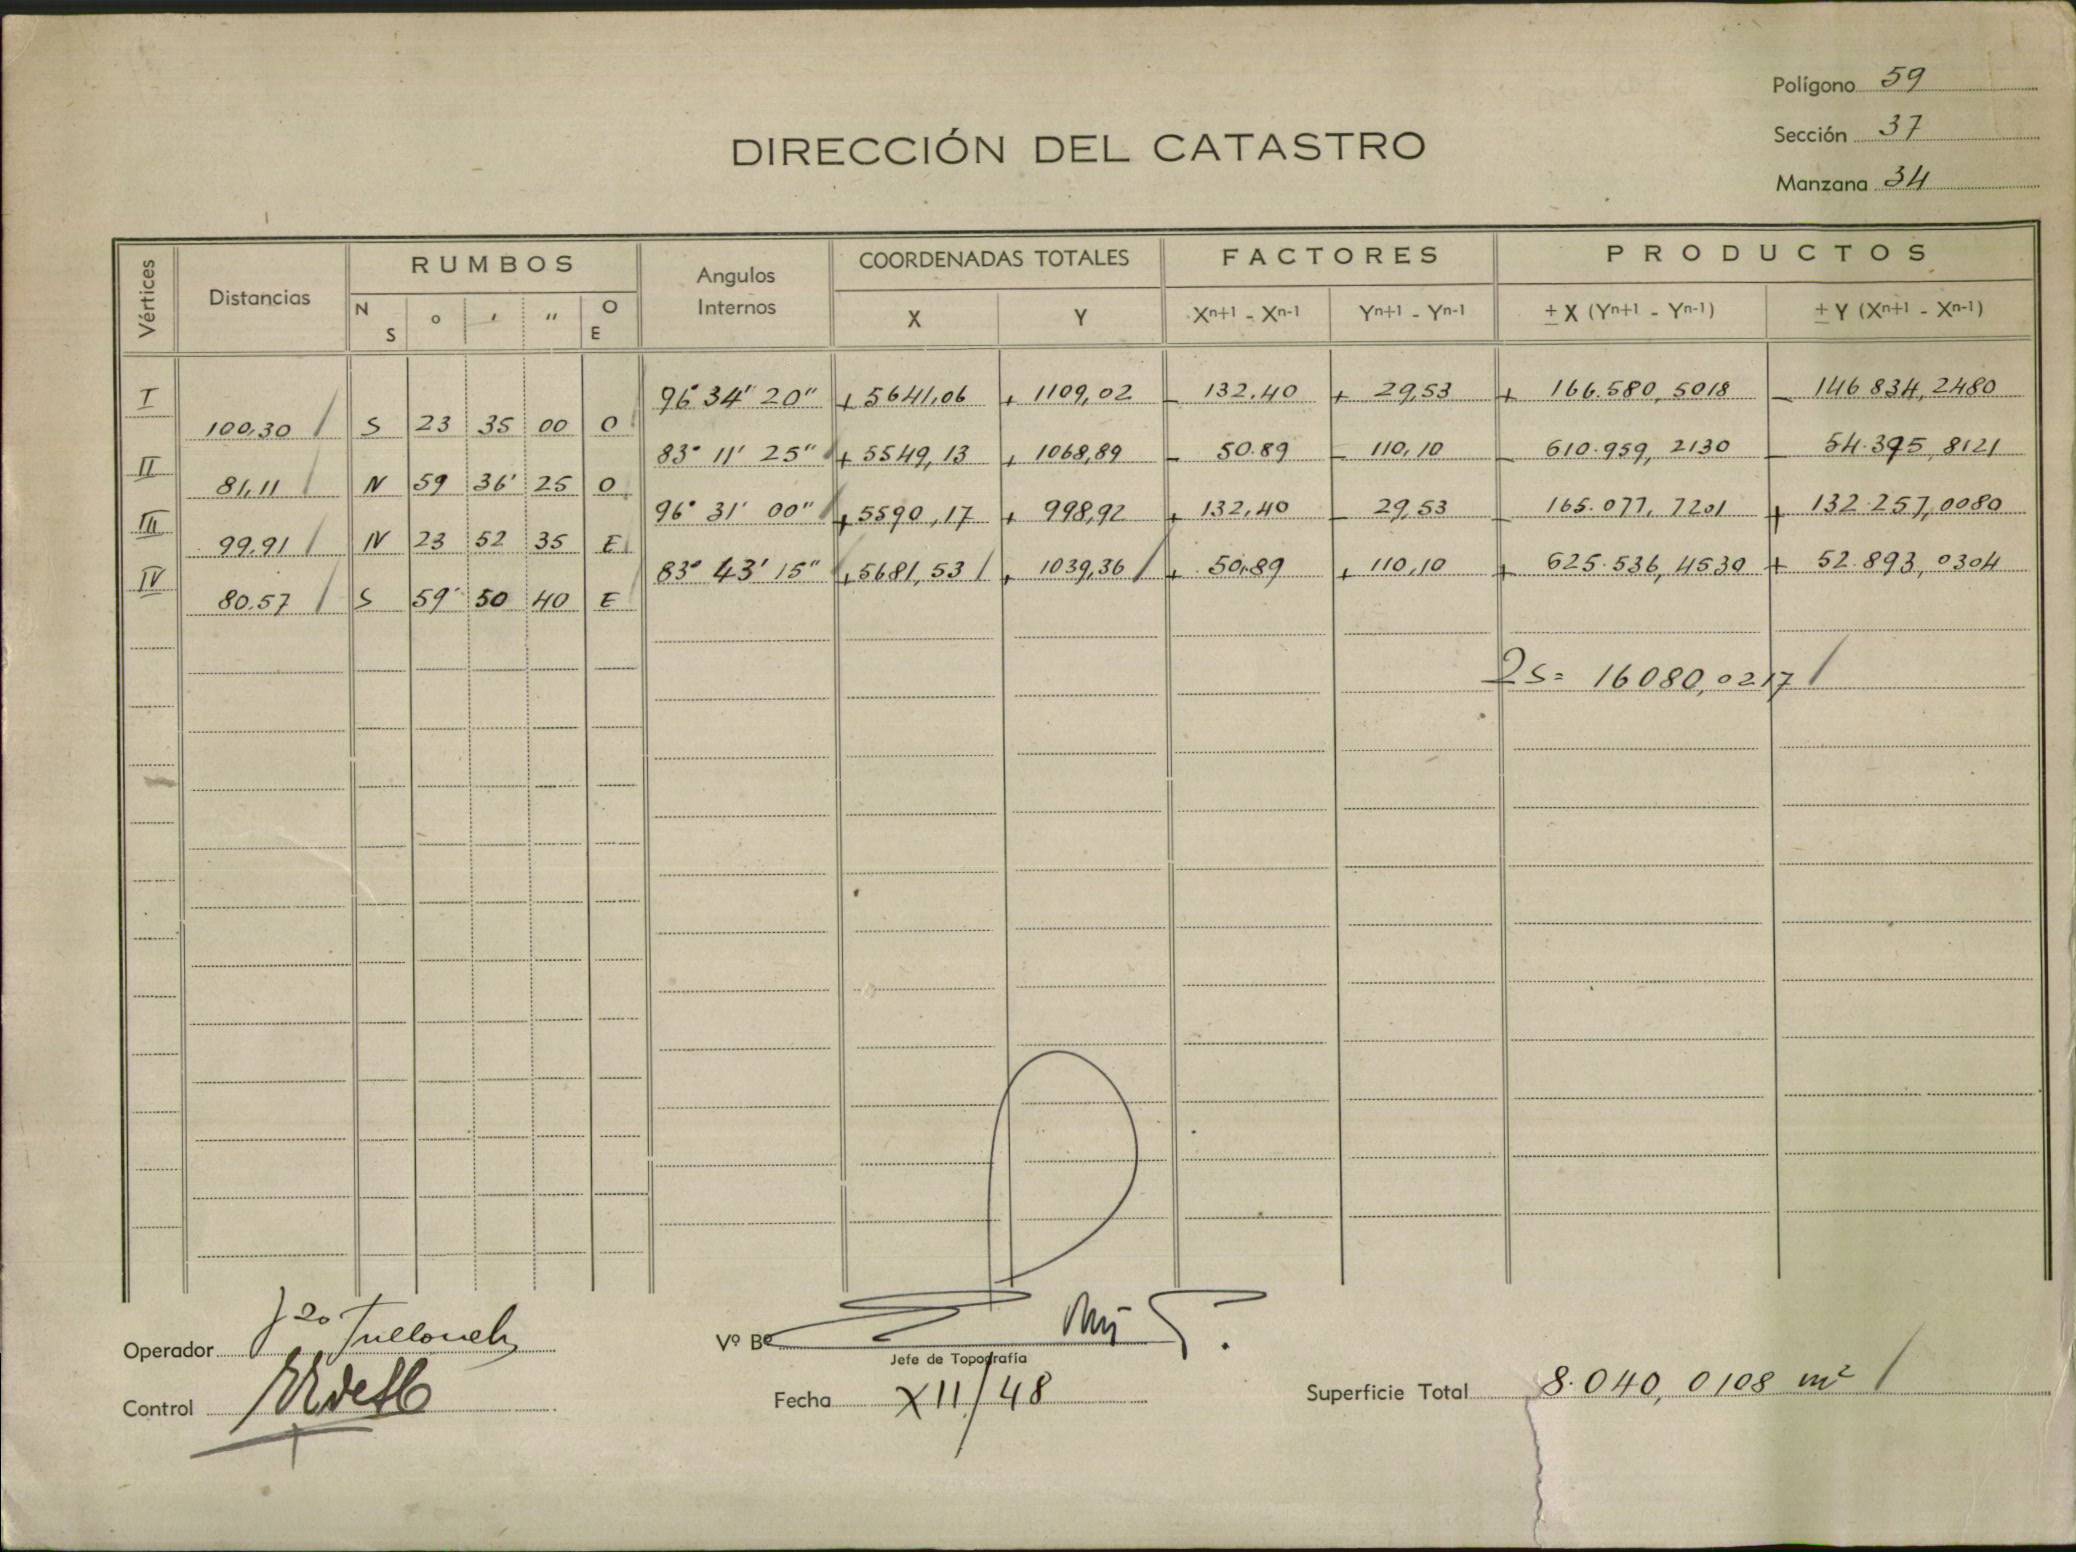 Polígono 59
Sección 37
Manzana 34
DIRECCIÓN DEL CATASTRO
Vértices Distancias RUMBOS Angulos Internos COORDENADAS TOTALES FACTORES PRODUCTOS
N S o ′ ″ O E X Y Xn+1 - Xn-1 Yn+1 - Yn-1 ± X (Yn+1 - Yn-1) ± Y (Xn+1 - Xn-1)
I 96° 34' 20" + 5641,06 + 1109,02 - 132.40 + 29,53 + 166.580,5018 - 146 834,2480
100,30 S 23 35 00 O
II 83° 11' 25" + 5549,13 + 1068,89 - 50.89 - 110,10 - 610.959,2130 - 54.395,8121
81,11 N 59 36' 25 O
III 96° 31' 00" + 5590,17 + 998,92 + 132,40 - 29,53 - 165.077,7201 + 132.257,0080
99,91 N 23 52 35 E
IV 83° 43' 15" + 5681,53 + 1039,36 + 50,89 + 110,10 + 625.536,4530 + 52.893,0304
80.57 S 59 50 40 E
2s= 16080,0217
Operador
Vº Bº
Jefe de Topografía
Control
Fecha XII/48
Superficie Total 8.040,0108 m²